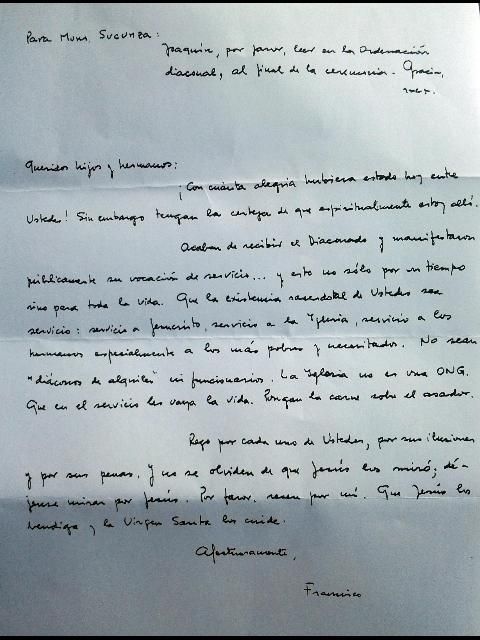 Para Mons. Sucunza:
Joaquín, por favor, leer en la Ordenación
diaconal, al final de la ceremonia. Gracias,
Queridos hijos y hermanos:
¡Con cuánta alegría hubiera estado hoy entre
Ustedes! Sin embargo tengan la certeza de que espiritualmente estoy allí.
Acaban de recibir el Diaconado y manifestaron
públicamente su vocación de servicio... y esto no sólo por un tiempo
sino para toda la vida. Que la existencia sacerdotal de Ustedes sea
servicio: servicio a Jesucristo, servicio a la Iglesia, servicio a los
hermanos especialmente a los más pobres y necesitados. No sean
"diáconos de alquiler" ni funcionarios. La Iglesia no es una ONG.
Que en el servicio les vaya la vida. Pongan la carne sobre el asador.
Rezo por cada uno de Ustedes, por sus ilusiones
y por sus penas. Y no se olviden de que Jesús los miró; dé-
jense mirar por Jesús. Por favor, recen por mí. Que Jesús los
bendiga y la Virgen Santa los cuide.
Afectuosamente,
Francisco